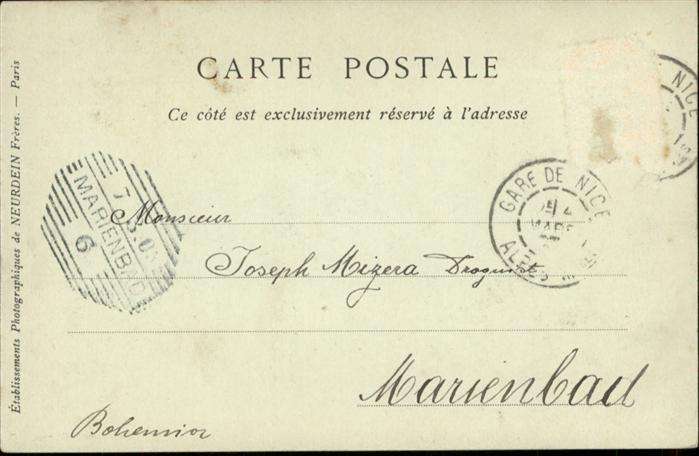 CARTE POSTALE
Ce côté est exclusivement réservé à l'adresse
Établissements Photographiques de NEURDEIN Frères. — Paris
NICE
GARE DE NICE
MARIENBAD
6
Monsieur
Joseph Mizera
Marienbad
Bohemior